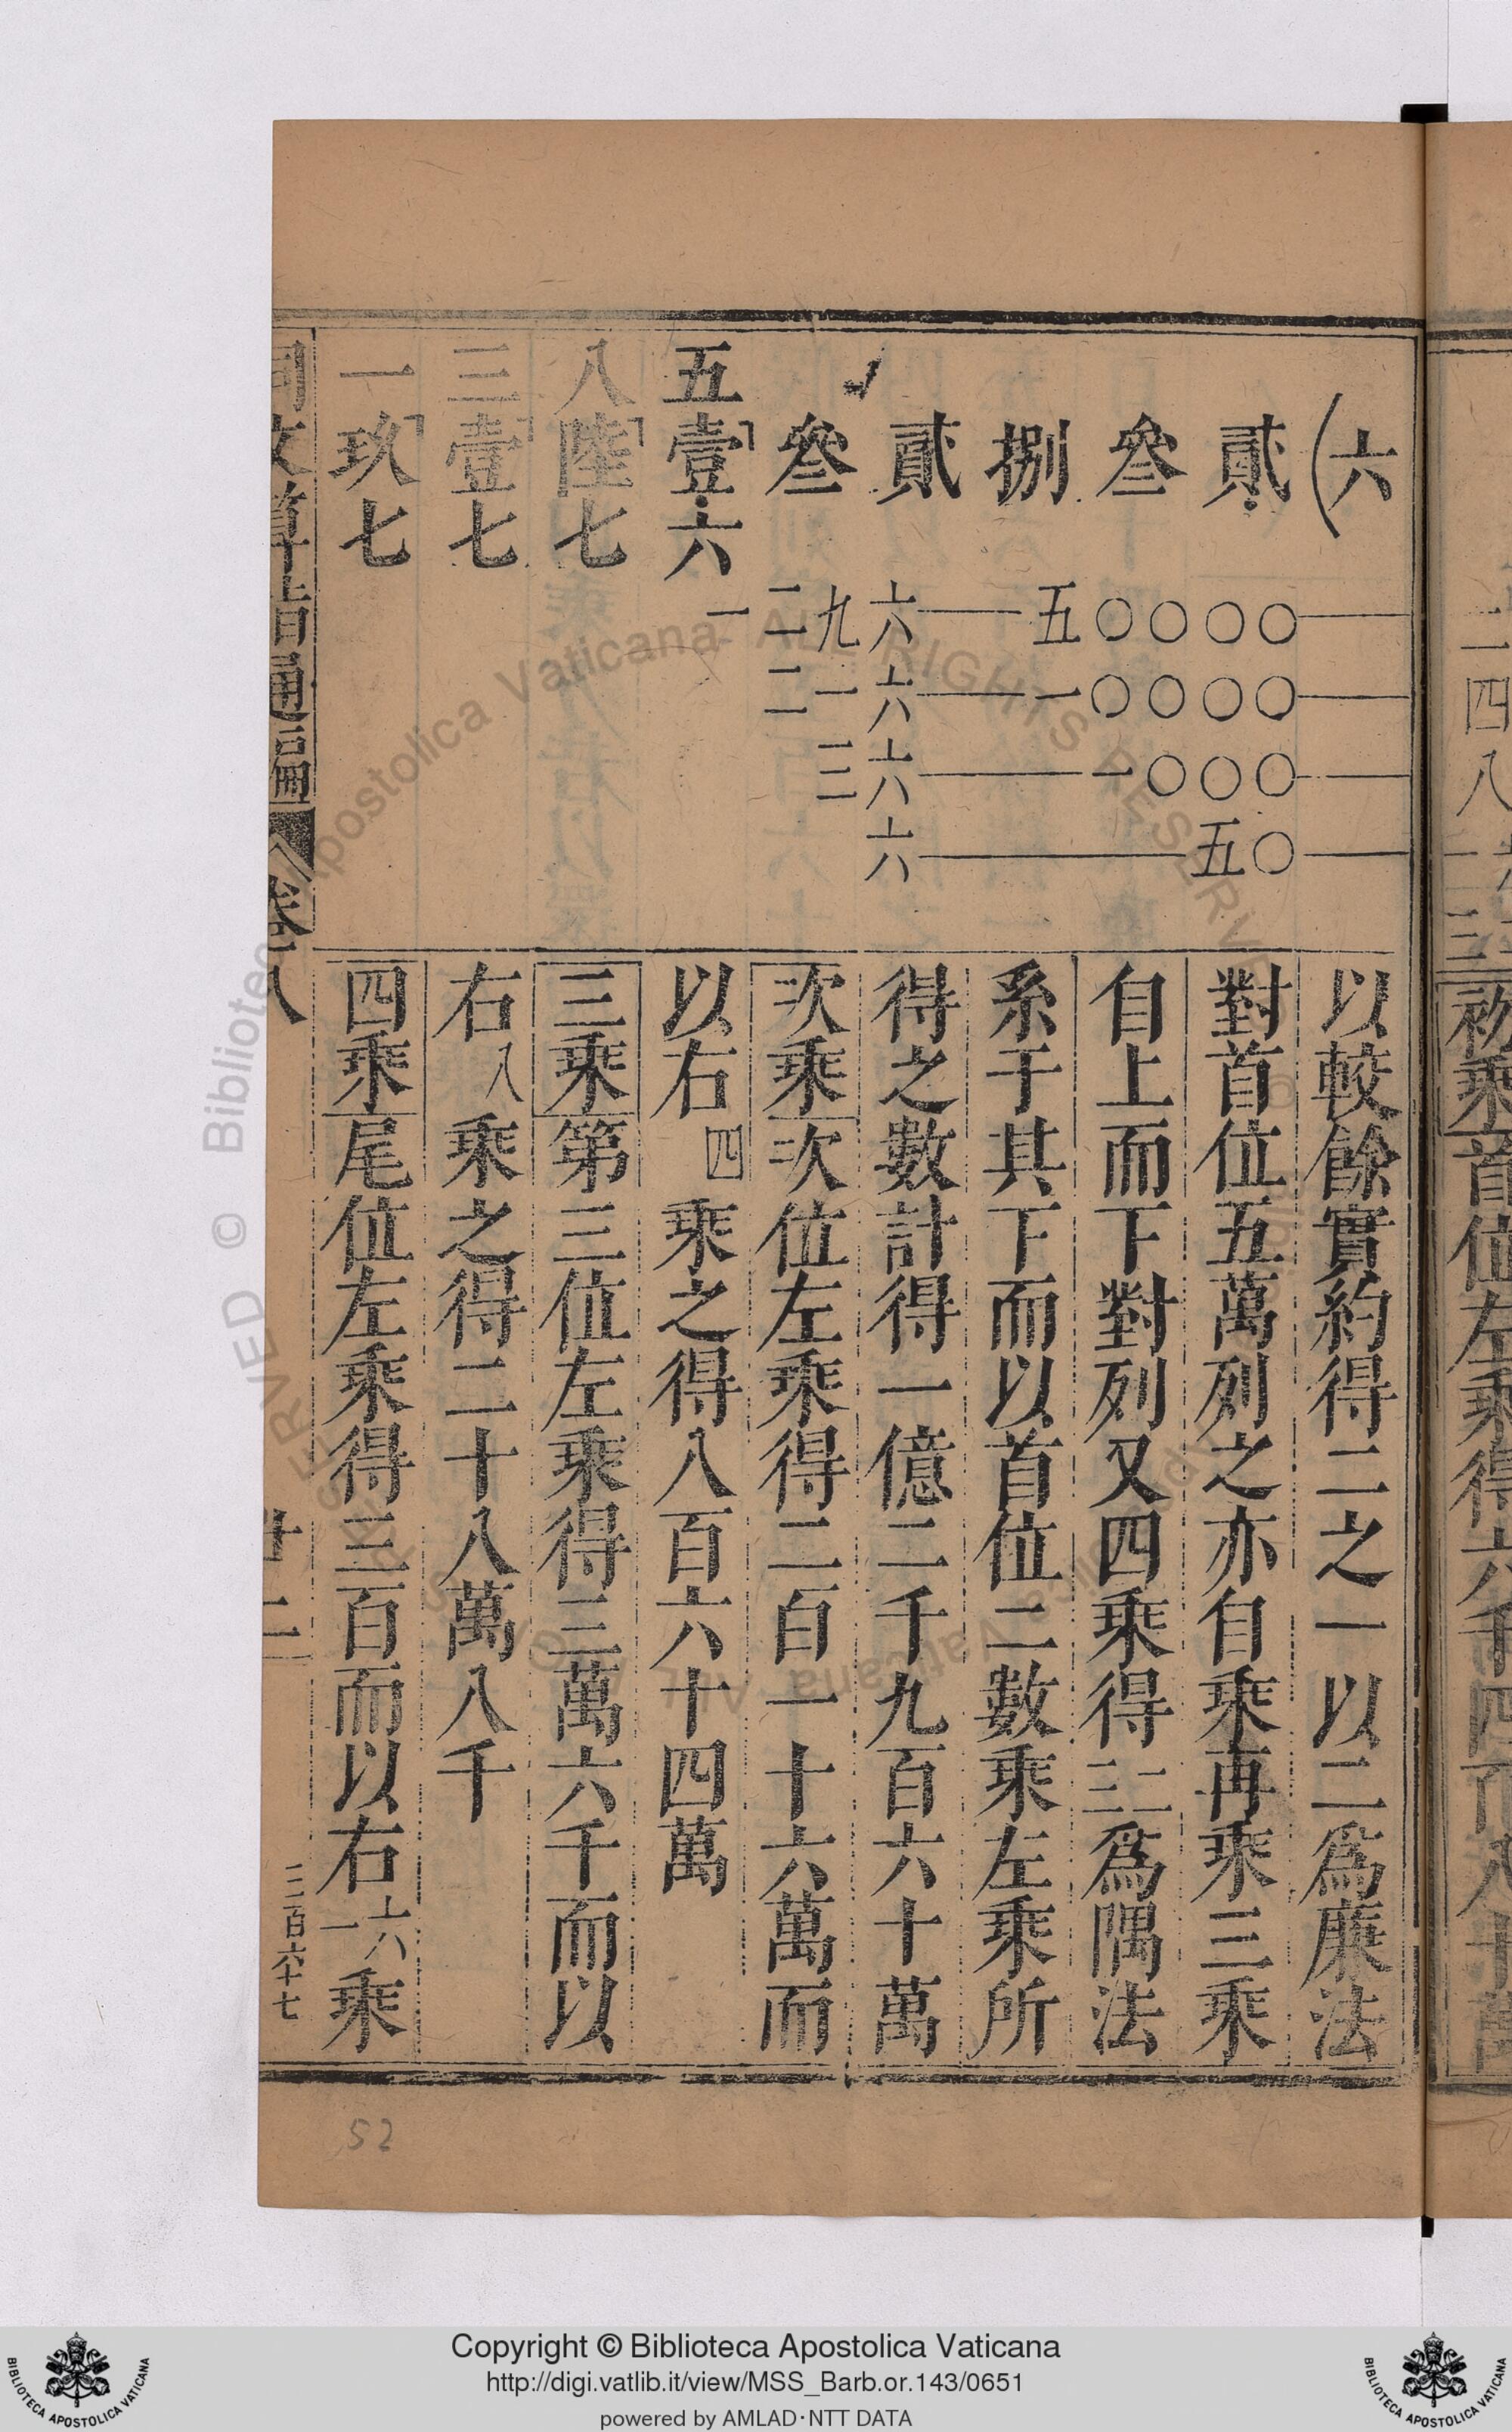 以較餘實約得二之一以二爲廉法
對首位五萬列之亦自乘再乘三乘
自上而下對列又四乘得三二爲隅法
系于其下而以首位二數乘左乘所
得之數計得一億二千九百六十萬
次乘次位左乘得二百一十六萬而
以右四乘之得八百六十四萬
三乘第三位左乘得三萬六千而以
右八乘之得二十八萬八千
四乘尾位左乘得三百而以右一六乘
六
貳
叁
捌
貳
叁
五壹六
八陸七
三壹七
一玖七
一二九六 五〇〇〇〇
二一六 一〇〇〇〇
三六 一〇〇〇
六 五〇
同文算指通編 卷八
廿二
二百六十七
52
Copyright © Biblioteca Apostolica Vaticana
http://digi.vatlib.it/view/MSS_Barb.or.143/0651
powered by AMLAD·NTT DATA